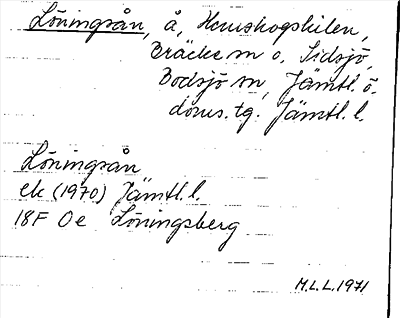 Löningsån, å, Hemskogskilen,
Bräcke sn o. Sidsjö,
Bodsjö sn, Jämtl. ö.
doms. tg. Jämtl. l.
Löningsån
ek (1970) Jämtl. l.
18F 0e Löningsberg
M.L.L. 1971